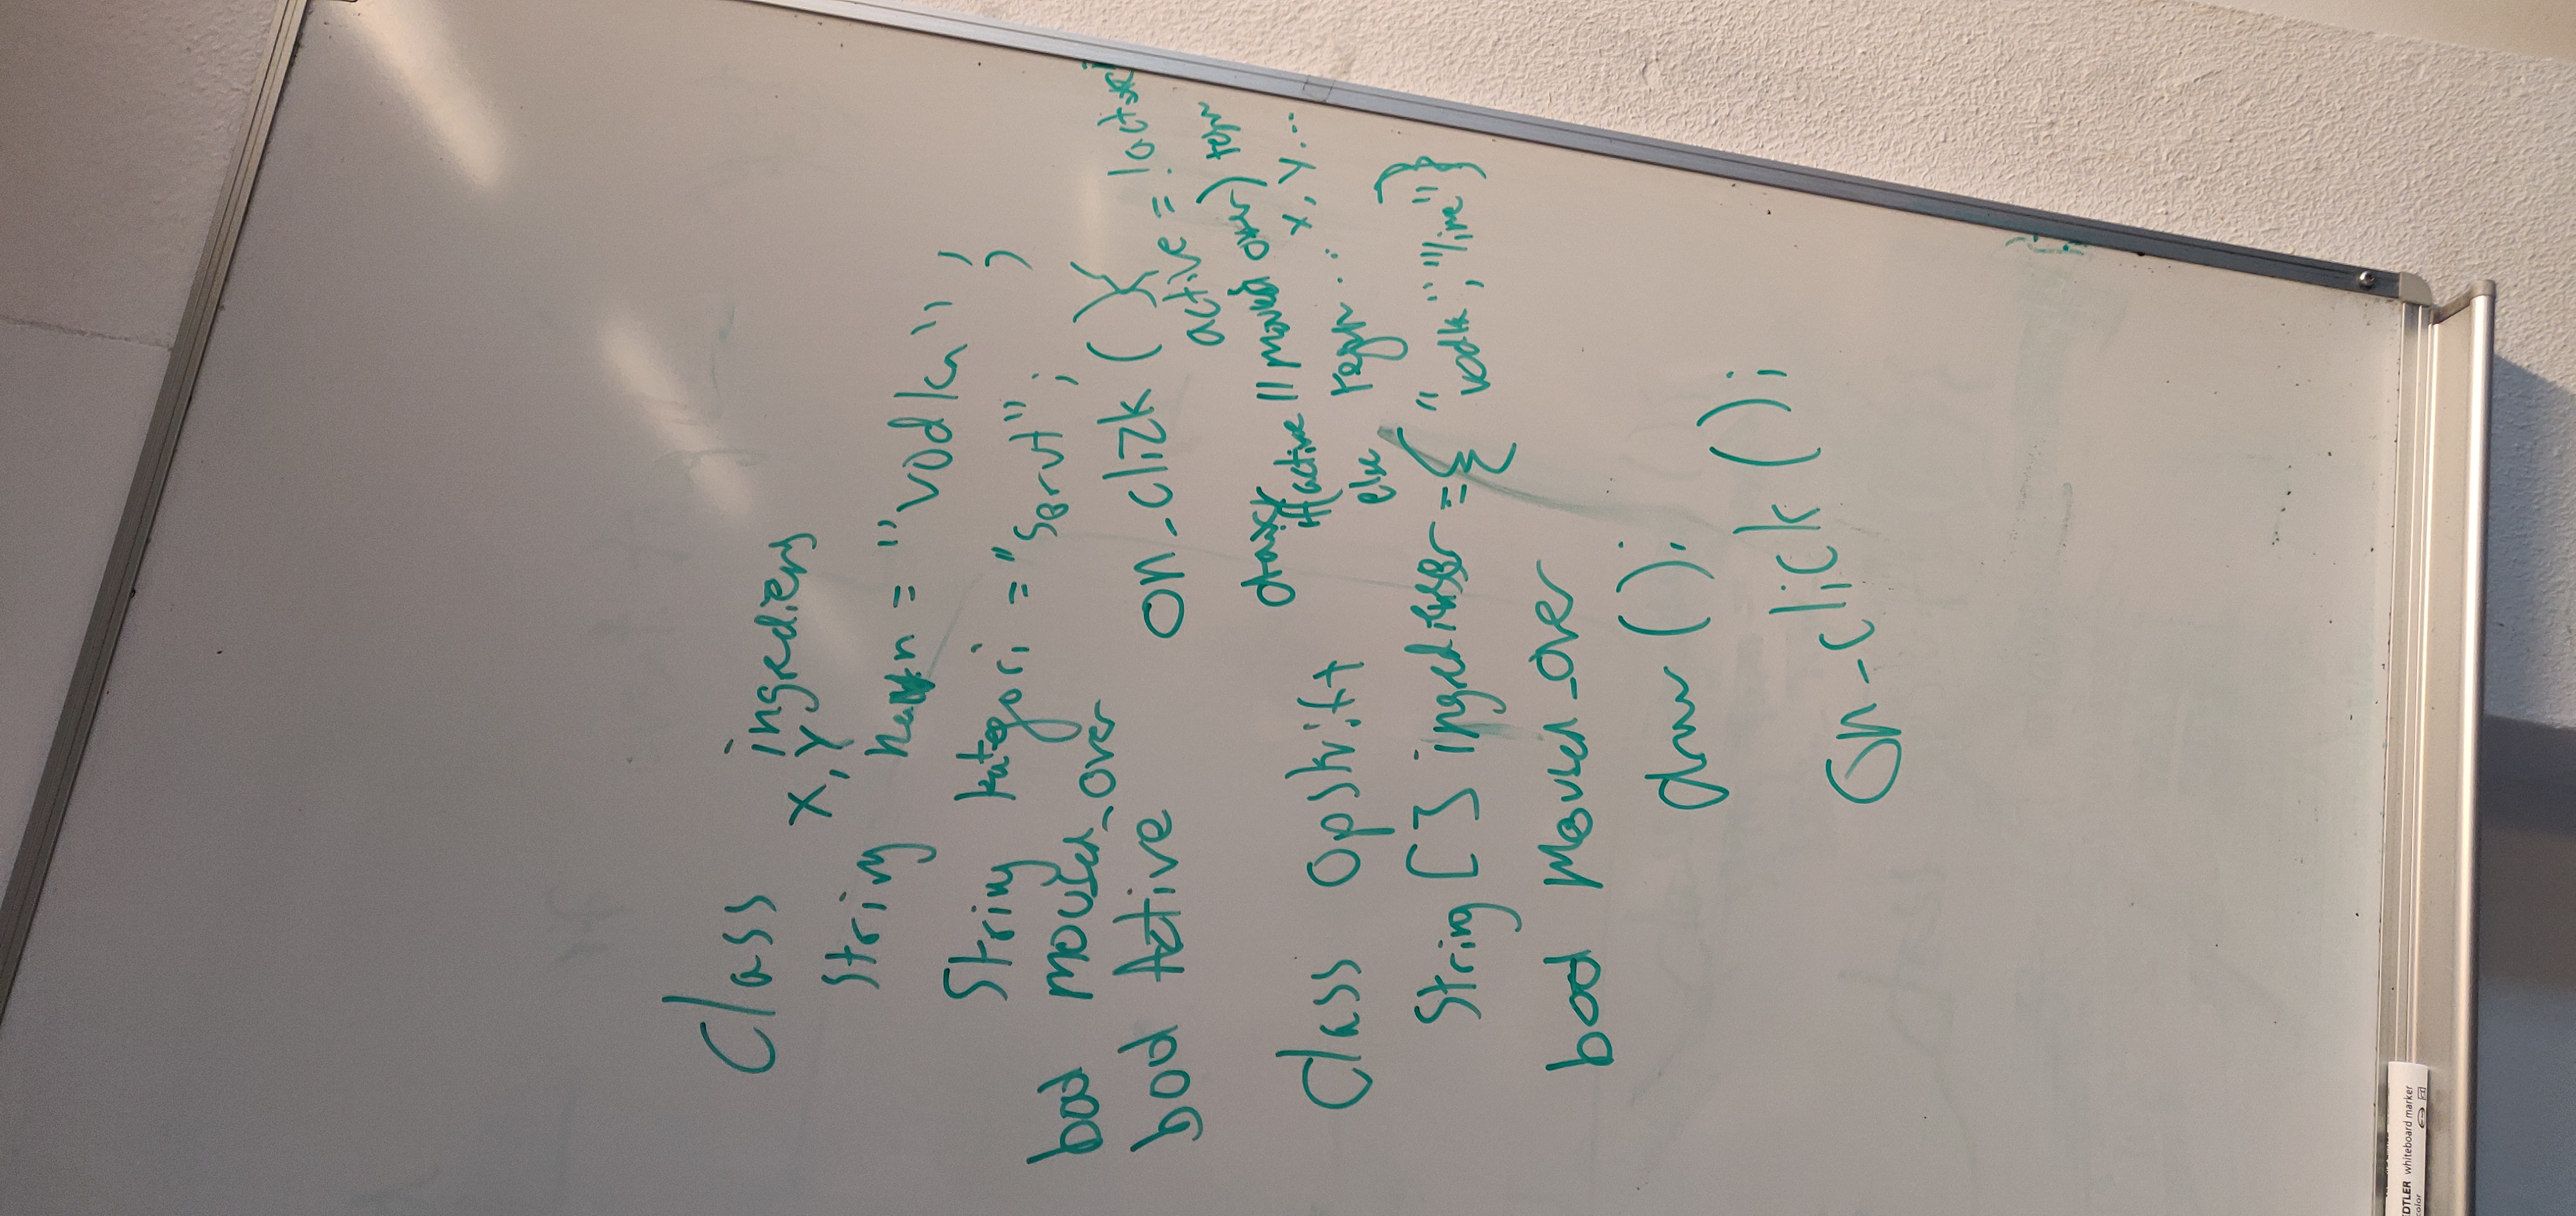 Class ingrediens
X, Y
String navn = "vodka" ;
String kategori = "Sprut"; ;
bool mouse_over
bool Active
on_click (){
active = !active
draw
if(active || mouse over) tegn
else tegn ... x, y...
Class Opskrift
String [ ] ingredienser = { "vodka", "lime" }
bool Mouse_over
draw ();
On_click ();
EDTLER whiteboard marker
color